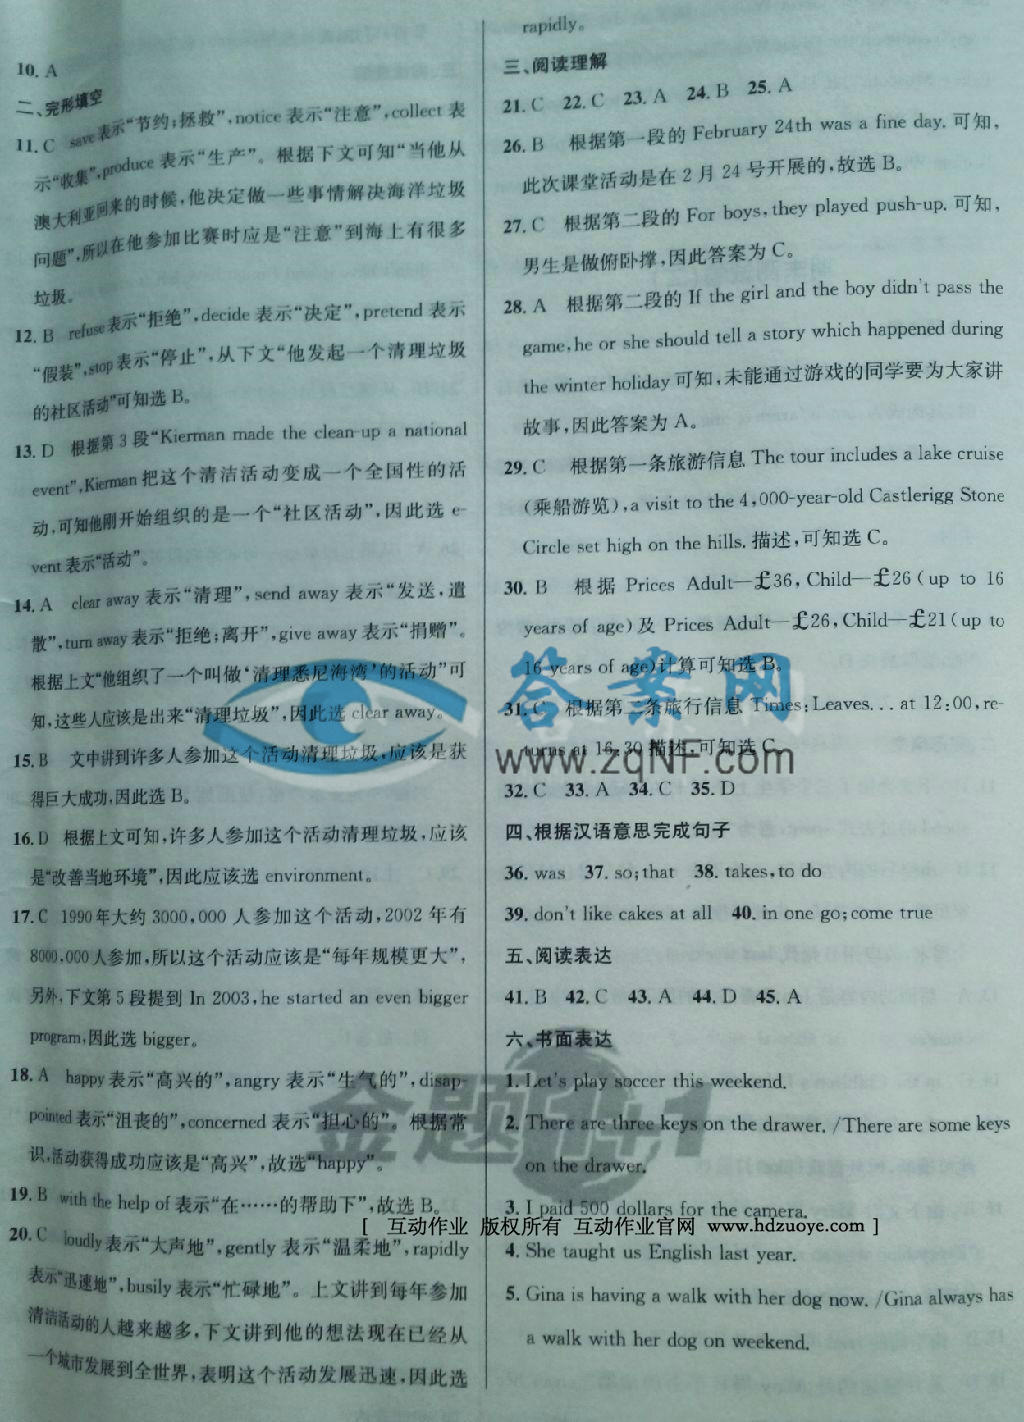 10. A
二、完形填空
11. C save表示“节约;拯救”,notice表示“注意”,collect表
示“收集”,produce表示“生产”。根据下文可知“当他从
澳大利亚回来的时候,他决定做一些事情解决海洋垃圾
问题”,所以在他参加比赛时应是“注意”到海上有很多
垃圾。
12. B refuse表示“拒绝”,decide表示“决定”,pretend表示
“假装”,stop表示“停止”,从下文“他发起一个清理垃圾
的社区活动”可知选B。
13. D 根据第3段“Kierman made the clean-up a national
event”,Kierman把这个清洁活动变成一个全国性的活
动,可知他刚开始组织的是一个“社区活动”,因此选e-
vent表示“活动”。
14. A clear away表示“清理”,send away表示“发送,遣
散”,turn away表示“拒绝;离开”,give away表示“捐赠”。
根据上文“他组织了一个叫做‘清理悉尼海湾’的活动”可
知,这些人应该是出来“清理垃圾”,因此选clear away。
15. B 文中讲到许多人参加这个活动清理垃圾,应该是获
得巨大成功,因此选B。
16. D 根据上文可知,许多人参加这个活动清理垃圾,应该
是“改善当地环境”,因此应该选environment。
17. C 1990年大约3000,000人参加这个活动,2002年有
8000,000人参加,所以这个活动应该是“每年规模更大”,
另外,下文第5段提到In 2003,he started an even bigger
program,因此选bigger。
18. A happy表示“高兴的”,angry表示“生气的”,disap-
pointed表示“沮丧的”,concerned表示“担心的”。根据常
识,活动获得成功应该是“高兴”,故选“happy”。
19. B with the help of表示“在……的帮助下”,故选B。
20. C loudly表示“大声地”,gently表示“温柔地”,rapidly
表示“迅速地”,busily表示“忙碌地”。上文讲到每年参加
清洁活动的人越来越多,下文讲到他的想法现在已经从
一个城市发展到全世界,表明这个活动发展迅速,因此选
rapidly。
三、阅读理解
21. C 22. C 23. A 24. B 25. A
26. B 根据第一段的February 24th was a fine day.可知,
此次课堂活动是在2月24号开展的,故选B。
27. C 根据第二段的For boys,they played push-up.可知,
男生是做俯卧撑,因此答案为C。
28. A 根据第二段的If the girl and the boy didn't pass the
game,he or she should tell a story which happened during
the winter holiday可知,未能通过游戏的同学要为大家讲
故事,因此答案为A。
29. C 根据第一条旅游信息The tour includes a lake cruise
(乘船游览),a visit to the 4,000-year-old Castlerigg Stone
Circle set high on the hills.描述,可知选C。
30. B 根据 Prices Adult—£36,Child—£26(up to 16
years of age)及 Prices Adult—£26,Child—£21(up to
16 years of age)计算可知选B。
31. C 根据第二条旅行信息Times;Leaves...at 12:00,re-
turns at 16:30描述,可知选C。
32. C 33. A 34. C 35. D
四、根据汉语意思完成句子
36. was 37. so;that 38. takes,to do
39. don't like cakes at all 40. in one go;come true
五、阅读表达
41. B 42. C 43. A 44. D 45. A
六、书面表达
1. Let's play soccer this weekend.
2. There are three keys on the drawer. /There are some keys
on the drawer.
3. I paid 500 dollars for the camera.
4. She taught us English last year.
5. Gina is having a walk with her dog now. /Gina always has
a walk with her dog on weekend.
答案网
www.zqNF.com
金题1+1
[ 互动作业 版权所有 互动作业官网 www.hdzuoye.com ]